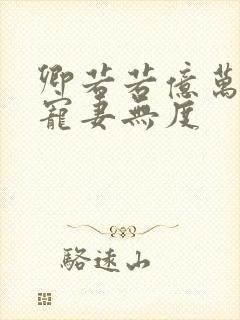 卿若若億萬
寵妻無度
駱遠山